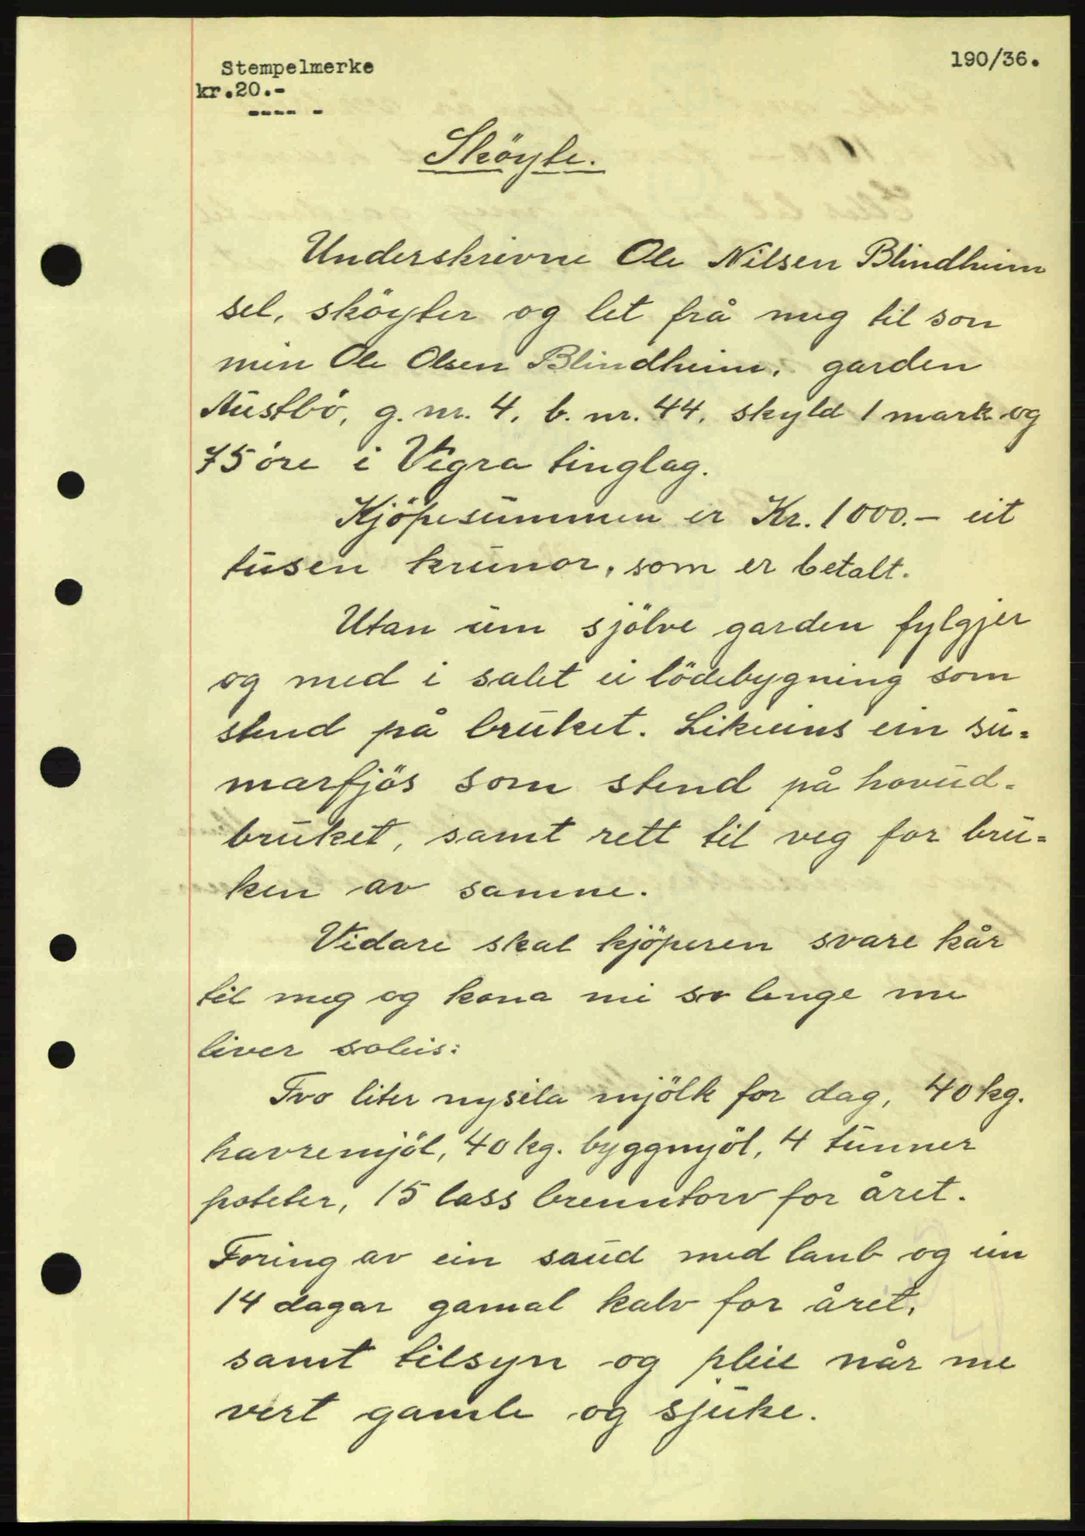 190/36.
Stempelmerke
kr.20.-
---- -
Sköyte.
Underskrivne Ole Nilsen Blindheim
sel, sköyter og let frå meg til son
min Ole Olsen Blindheim, garden
Austbö, g. nr. 4, b. nr. 44, skyld 1 mark og
75 öre i Vigra tinglag.
Kjöpesummen er Kr. 1000.- eit
tusen krunor, som er betalt.
Utan um sjölve garden fylgjer
og med i salet ei lödebygning som
stend på bruket. Likeeins ein su=
marfjös som stend på hovud-
bruket, samt rett til veg for bru=
ken av samme.
Vidare skal kjöperen svare kår
til meg og kona mi so lenge me
liver soleis:
Tvo liter nysila mjölk for dag, 40 kg.
havremjöl, 40 kg. byggmjöl, 4 tunner
poteter, 15 lass brenntorv for året.
Foring av ein saud med lamb og ein
14 dagar gamal kalv for året,
samt tilsyn og pleie når me
vert gamle og sjuke.